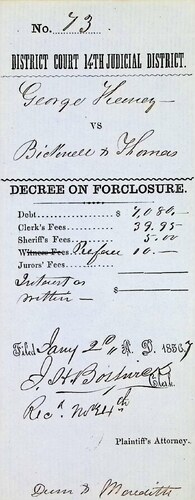 No. 73
DISTRICT COURT 14TH JUDICIAL DISTRICT.
George Keeney
VS
Bicknell & Thomas
DECREE ON FORECLOSURE.
Debt $ 7,080.-
Clerk's Fees 39.95
Sheriff's Fees 5.00
Witness Fees Preface 10.-
Jurors' Fees
Interest as
written — $
Filed Jany 2d A. D. 1867
J. H. Clerk.
Rec'd
Plaintiff's Attorney.
Dunn & Meredith